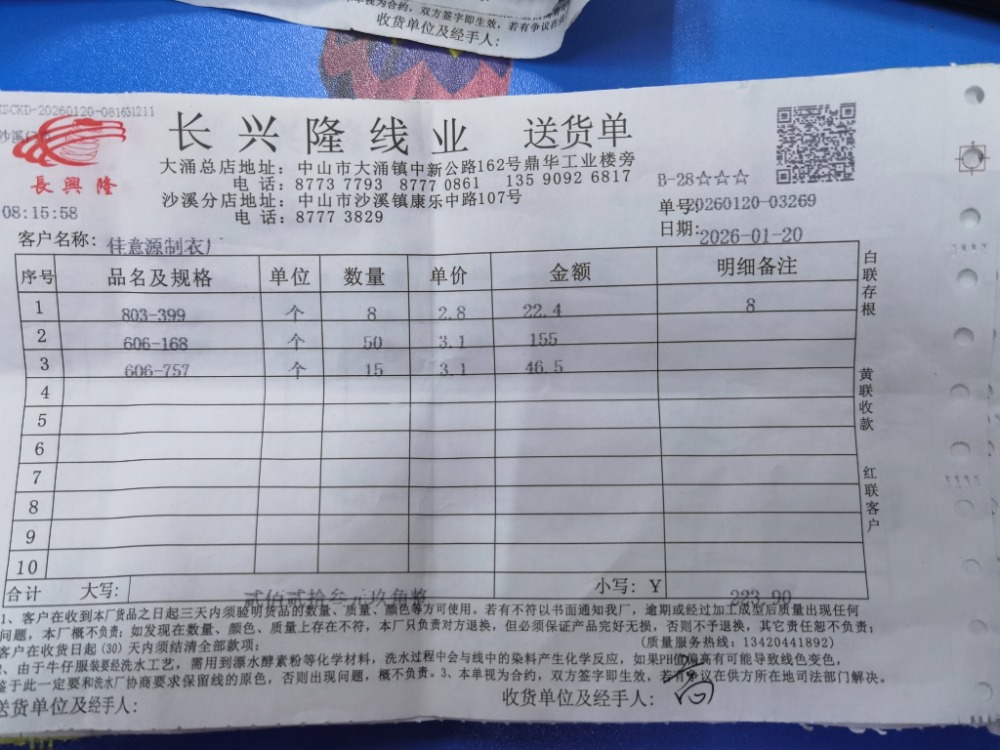 本单视为合约，双方签字即生效，若有争议在
收货单位及经手人：
SCKD-20260120-081631211
沙溪
長興隆
长兴隆线业 送货单
大涌总店地址：中山市大涌镇中新公路162号鼎华工业楼旁
电话：8773 7793 8777 0861 135 9092 6817
沙溪分店地址：中山市沙溪镇康乐中路107号
电话：8777 3829
B-28☆☆☆
08:15:58
单号 20260120-03269
日期：2026-01-20
客户名称：佳意源制衣厂
序号 品名及规格 单位 数量 单价 金额 明细备注
1 803-399 个 8 2.8 22.4 8
2 606-168 个 50 3.1 155
3 606-757 个 15 3.1 46.5
4
5
6
7
8
9
10
合计 大写：贰佰贰拾叁元玖角整 小写：Y 223.90
白联存根
黄联收款
红联客户
1、客户在收到本厂货品之日起三天内须验明货品的数量、质量、颜色等方可使用。若有不符以书面通知我厂，逾期或经过加工成型后质量出现任何
问题，本厂概不负责；如发现在数量、颜色、质量上存在不符，本厂只负责对方退换，但必须保证产品完好无损，否则不予退换，其它责任恕不负责；
客户在收货日起(30)天内须结清全部款项； (质量服务热线：13420441892)
2、由于牛仔服装要经洗水工艺，需用到漂水酵素粉等化学材料，洗水过程中会与线中的染料产生化学反应，如果PH值偏高有可能导致线色变色，
鉴于此一定要和洗水厂协商要求保留线的原色，否则出现问题，概不负责。3、本单视为合约，双方签字即生效，若有争议在供方所在地司法部门解决。
送货单位及经手人： 收货单位及经手人：